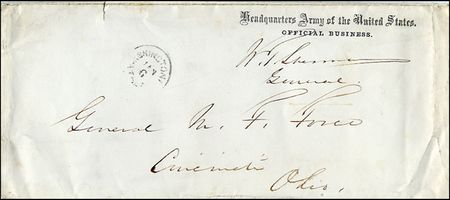 Headquarters Army of the United States.
OFFICIAL BUSINESS.
W. T. Sherman
General
WASHINGTON
JAN
6
General M. F. Force
Cincinnati
Ohio.